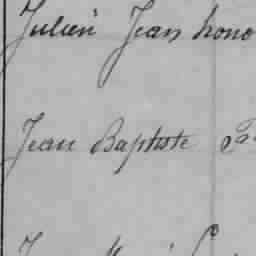 Julien Jean hono
Jean Baptiste